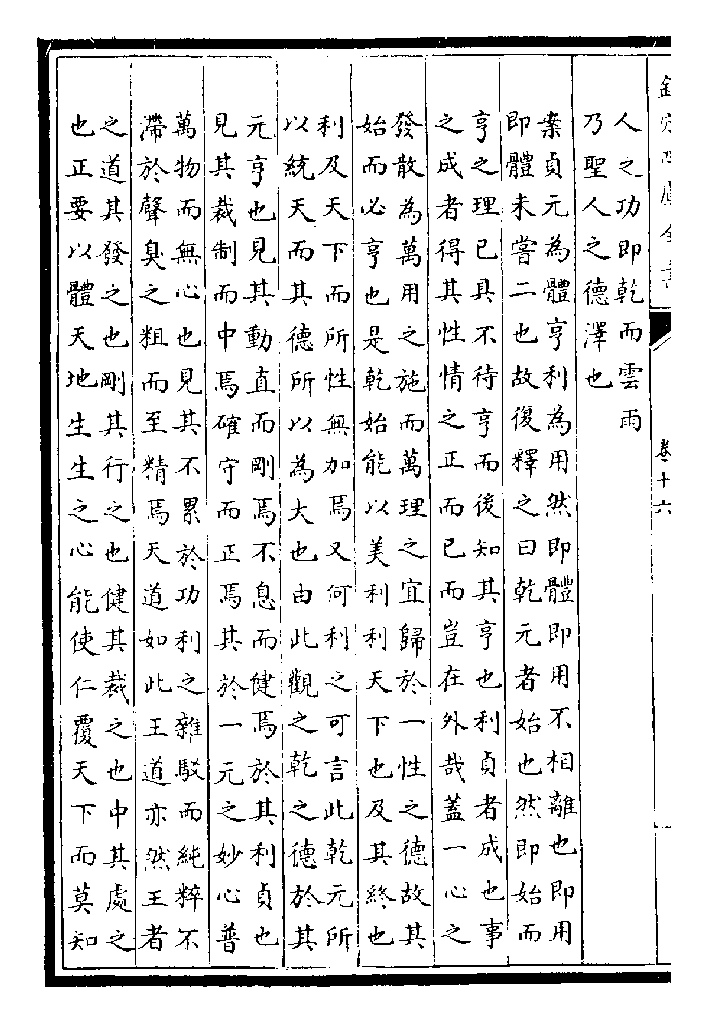 欽定四庫全書
卷十六
人之功即乾而雲雨
乃聖人之德澤也
案貞元為體亨利為用然即體即用不相離也即用
即體未嘗二也故復釋之曰乾元者始也然即始而
亨之理已具不待亨而後知其亨也利貞者成也事
之成者得其性情之正而已而豈在外哉蓋一心之
發散為萬用之施而萬理之宜歸於一性之德故其
始而必亨也是乾始能以美利利天下也及其終也
利及天下而所性無加焉又何利之可言此乾元所
以統天而其德所以為大也由此觀之乾之德於其
元亨也見其動直而剛焉不息而健焉於其利貞也
見其裁制而中焉確守而正焉其於一元之妙心普
萬物而無心也見其不累於功利之雜駁而純粹不
滯於聲臭之粗而至精焉天道如此王道亦然王者
之道其發之也剛其行之也健其裁之也中其處之
也正要以體天地生生之心能使仁覆天下而莫知